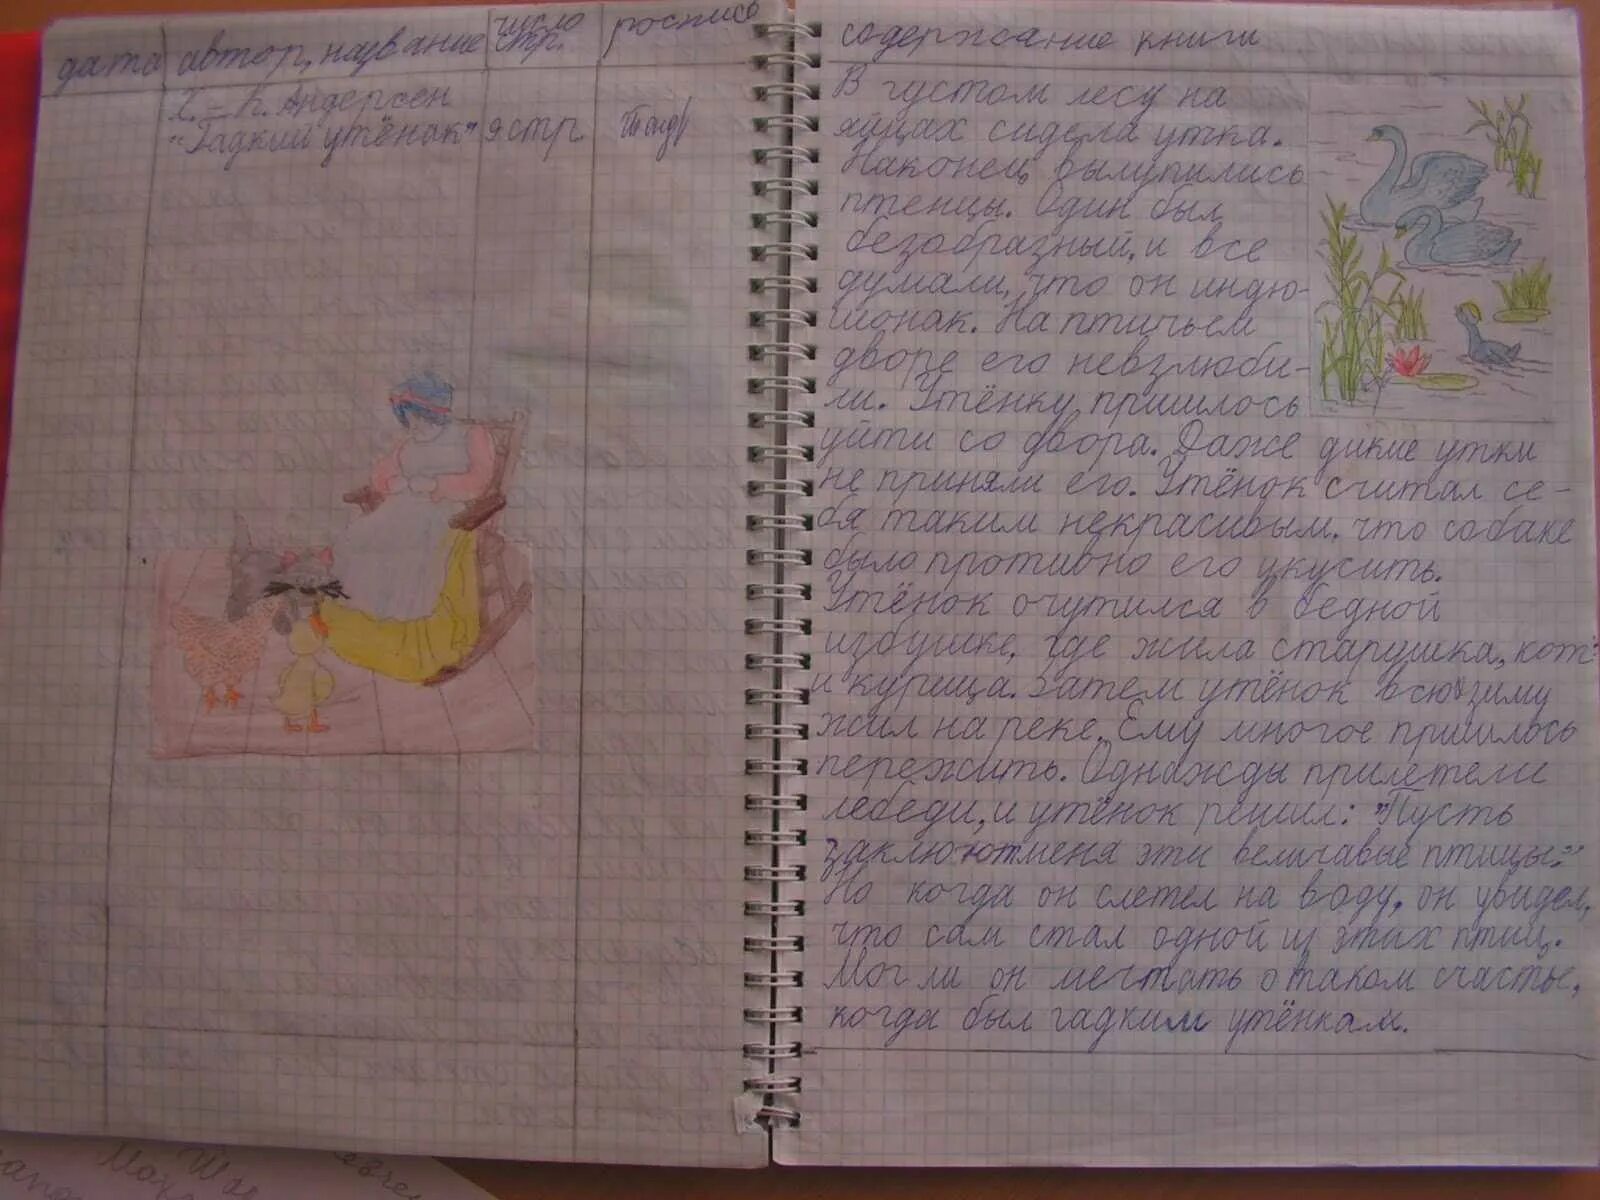 дата автор, название число стр. роспись
Х.-К. Андерсен
"Гадкий утёнак" я стр
содержание книги
В густом лесу на
яйцах сидела утка.
Наконец вылупились
птенцы. Один был
безобразный, и все
думали, что он индю-
шонак. На птичьем
дворе его невзлюби-
ли. Утёнку пришлось
уйти со двора. Даже дикие утки
не приняли его. Утёнок считал се-
бя таким некрасивым, что собаке
было противно его укусить.
Утёнок очутился в бедной
избушке, где жила старушка, кот
и курица. Затем утёнок всю зиму
жил на реке. Ему многое пришлось
пережить. Однажды прилетели
лебеди, и утёнок решил: "Пусть
заклюютменя эти величавые птицы."
Но когда он слетел на воду, он увидел,
что сам стал одной из этих птиц.
Мог ли он мечтать о таком счастье,
когда был гадким утёнкам.